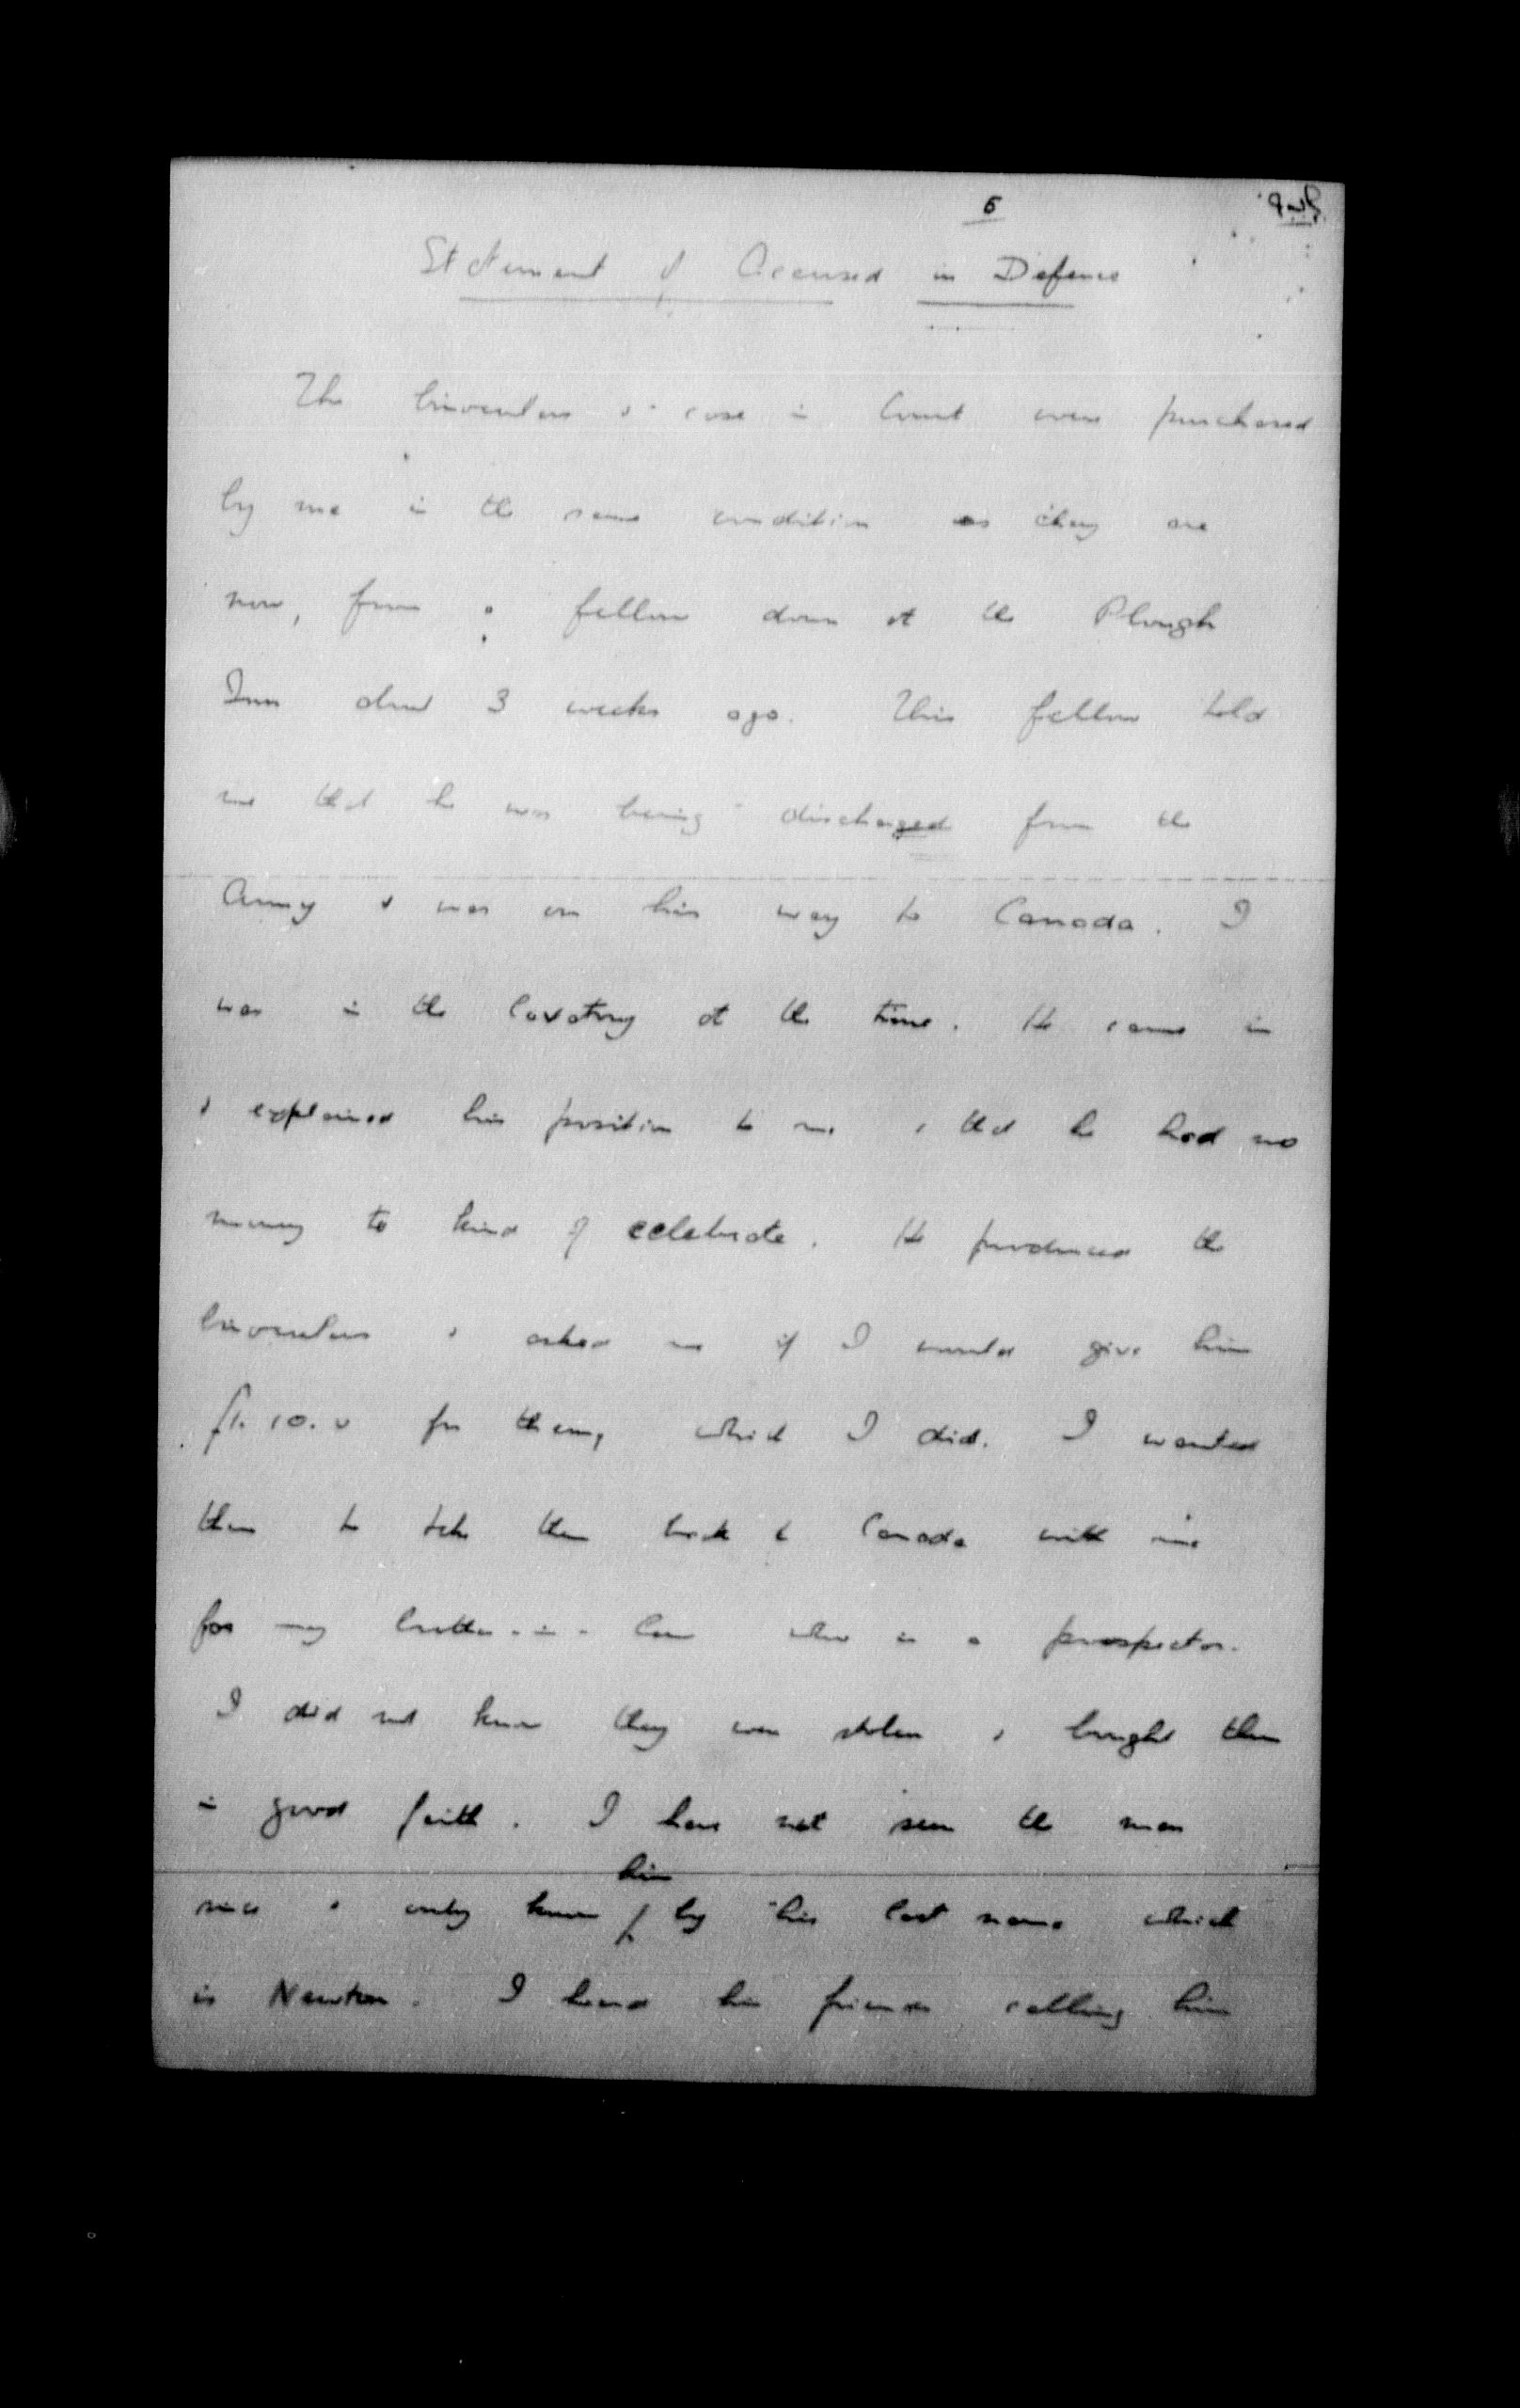 6
Statement of Accused in Defence
The binoculars & case in Court were purchased
by me in the same condition as they are
now, from a fellow down at the Plough
Inn about 3 weeks ago. This fellow told
me that he was being discharged from the
Army & was on his way to Canada. I
was in the lavatory at the time. He came in
& explained his position to me & that he had no
money to kind of celebrate. He produced the
binoculars & asked me if I would give him
£1.10.0 for them, which I did. I wanted
them to take them back to Canada with me
for my brother-in-law who is a prospector.
I did not know they were stolen & bought them
in good faith. I have not seen the man
since & only know him by his last name which
is Newton. I heard his friends calling him